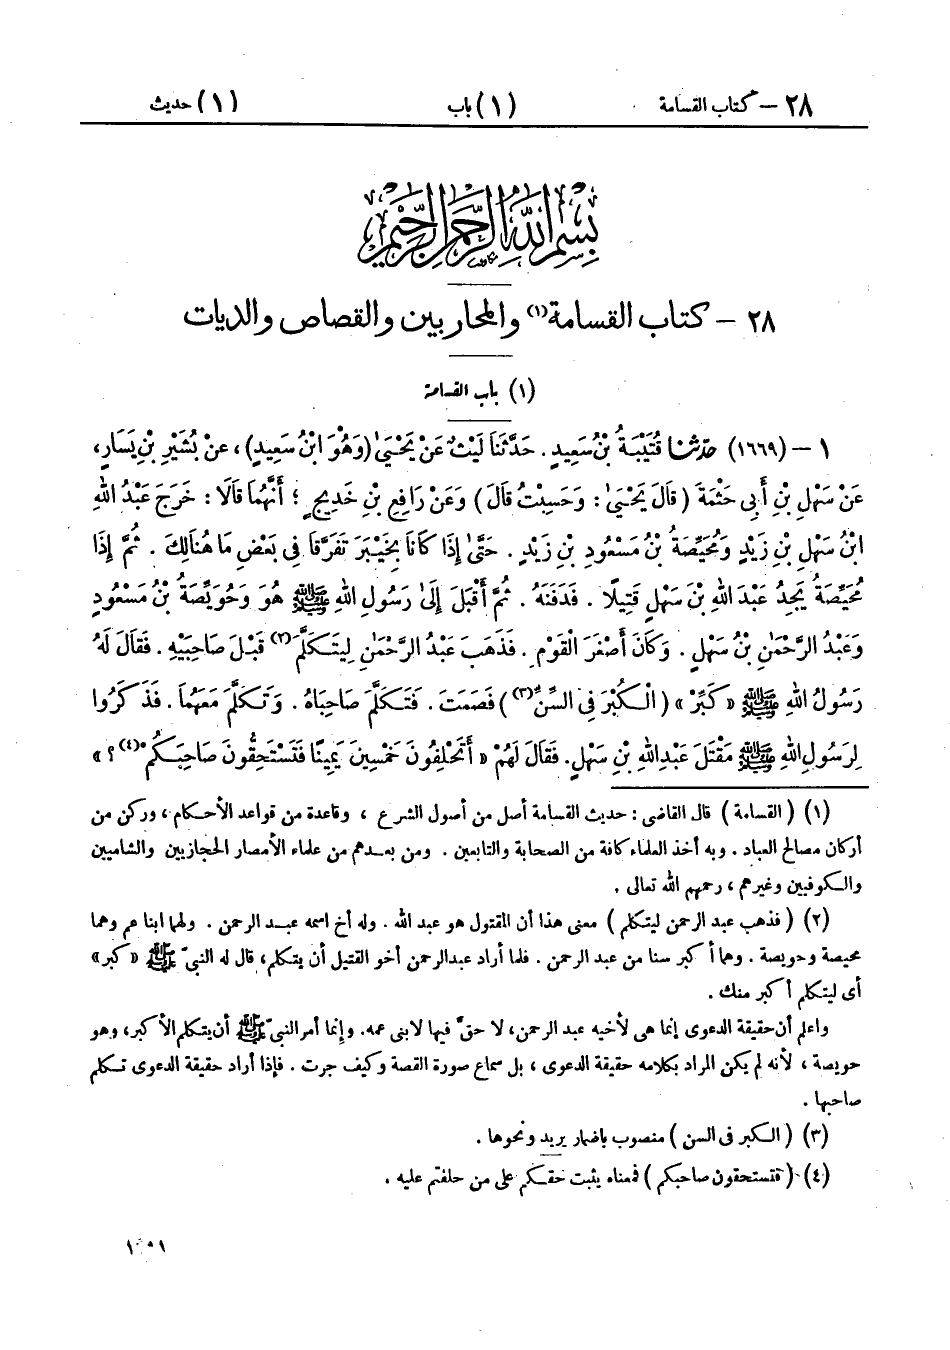 ٢٨ – كتاب القسامة (١) باب (١) حديث
بسم الله الرحمن الرحيم
٢٨ – كتاب القسامة(١) والمحاربين والقصاص والديات
(١) باب القسامة
١ – (١٦٦٩) حدّثنا قُتَيْبَةُ بْنُ سَعِيدٍ . حَدَّثَنَا لَيْثٌ عَنْ يَحْيَىٰ (وَهُوَ ابْنُ سَعِيدٍ) ، عَنْ بُشَيْرِ بْنِ يَسَارٍ،
عَنْ سَهْلِ بْنِ أَبِي حَثْمَةَ ( قَالَ يَحْيَىٰ : وَحَسِبْتُ قَالَ ) وَعَنْ رَافِعِ بْنِ خَدِيجٍ ؛ أَنَّهُمَا قَالَا : خَرَجَ عَبْدُ اللهِ
ابْنُ سَهْلِ بْنِ زَيْدٍ وَمُحَيِّصَةُ بْنُ مَسْعُودِ بْنِ زَيْدٍ . حَتَّىٰ إِذَا كَانَا بِخَيْبَرَ تَفَرَّقَا فِي بَعْضِ مَا هُنَالِكَ . ثُمَّ إِذَا
مُحَيِّصَةُ يَجِدُ عَبْدَ اللهِ بْنَ سَهْلٍ قَتِيلًا . فَدَفَنَهُ . ثُمَّ أَقْبَلَ إِلَىٰ رَسُولِ اللهِ ﷺ هُوَ وَحُوَيِّصَةُ بْنُ مَسْعُودٍ
وَعَبْدُ الرَّحْمَٰنِ بْنُ سَهْلٍ . وَكَانَ أَصْغَرَ الْقَوْمِ . فَذَهَبَ عَبْدُ الرَّحْمَٰنِ لِيَتَكَلَّمَ(٢) قَبْلَ صَاحِبَيْهِ . فَقَالَ لَهُ
رَسُولُ اللهِ ﷺ « كَبِّرْ » ( الْكُبْرَ فِي السِّنِّ(٣) ) فَصَمَتَ . فَتَكَلَّمَ صَاحِبَاهُ . وَتَكَلَّمَ مَعَهُمَا . فَذَكَرُوا
لِرَسُولِ اللهِ ﷺ مَقْتَلَ عَبْدِ اللهِ بْنِ سَهْلٍ. فَقَالَ لَهُمْ « أَتَحْلِفُونَ خَمْسِينَ يَمِينًا فَتَسْتَحِقُّونَ صَاحِبَكُمْ(٤) ؟ »
(١) ( القسامة ) قال القاضى : حديث القسامة أصل من أصول الشرع ، وقاعدة من قواعد الأحكام ، وركن من
أركان مصالح العباد . وبه أخذ العلماء كافة من الصحابة والتابعين . ومن بعدهم من علماء الأمصار الحجازيين والشاميين
والكوفيين وغيرهم ، رحمهم الله تعالى .
(٢) ( فذهب عبد الرحمن ليتكلم ) معنى هذا أن المقتول هو عبد الله . وله أخ اسمه عبد الرحمن . ولهما ابنا عم وهما
محيصة وحويصة . وهما أكبر سنا من عبد الرحمن . فلما أراد عبدالرحمن أخو القتيل أن يتكلم، قال له النبىّ ﷺ « كبر »
أى ليتكلم أكبر منك .
واعلم أن حقيقة الدعوى إنما هى لأخيه عبد الرحمن، لا حقّ فيها لابنى عمه. وإنما أمر النبىّ ﷺ أن يتكلم الأكبر، وهو
حويصة ، لأنه لم يكن المراد بكلامه حقيقة الدعوى ، بل سماع صورة القصة وكيف جرت . فإذا أراد حقيقة الدعوى تكلم
صاحبها .
(٣) ( الكبر فى السن ) منصوب بإضمار يريد ونحوها .
(٤) ( فتستحقون صاحبكم ) فمعناه يثبت حقكم على من حلفتم عليه .